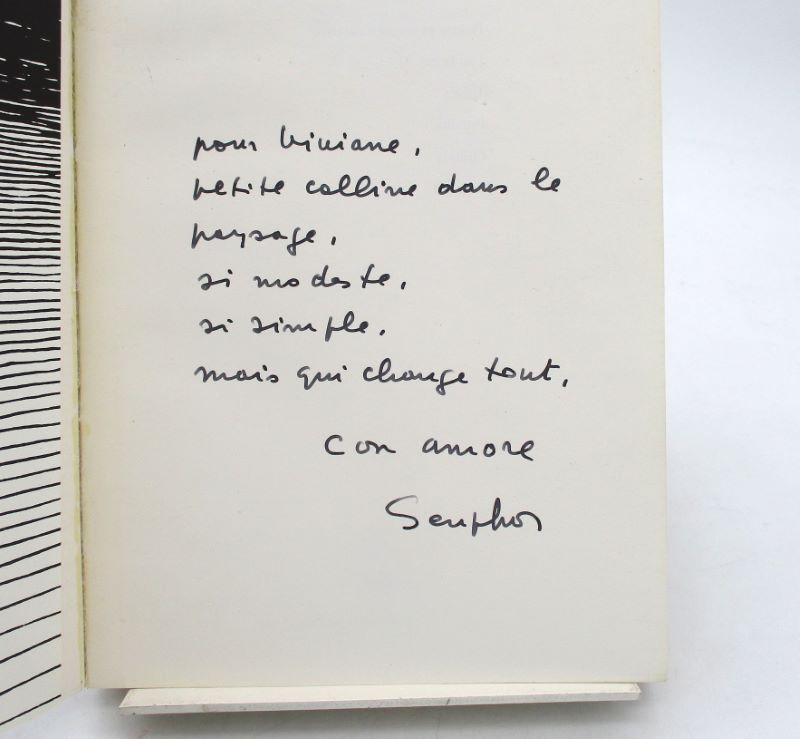 pour Viviane,
petite colline dans le
paysage,
si modeste,
si simple,
mais qui change tout,
con amore
Seuphor